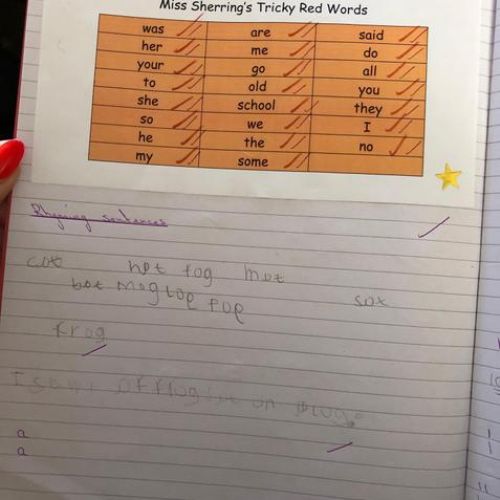 Miss Sherring's Tricky Red Words
was are said
her me do
your go all
to old you
she school they
so we I
he the no
my some
Rhyming sentences
cot hot fog hot
bot mog top pop sot
frog
I on
a
a